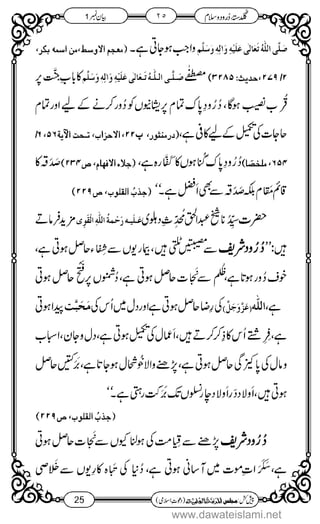 گلدستہ دُرود و سلام ۲۵ بیان نمبر 1
صَلَّی اللّٰہُ تَعَالٰی عَلَیْہِ وَاٰلِہٖ وَسَلَّم واجب ہوجاتی ہے۔ (معجم الاوسط،من اسمہ بکر،
۲/ ۲۷۹، حدیث: ۳۲۸۵) مُصْطَفٰے صَلَّی اللّٰہُ تَعَالٰی عَلَیْہِ وَاٰلِہٖ وَسَلَّم کا بابِ جنّت پر
قُرب نصیب ہوگا، دُرُودِ پاک تمام پریشانیوں کو دُور کرنے کے لیے اور تمام
حاجات کی تکمیل کے لیے کافی ہے، (درمنثور، پ۲۲، الاحزاب، تحت الآیۃ۵۶، ۶/
۶۵۴، ملخصا) دُرُودِ پاک گُناہوں کا کفّارہ ہے، (جلاء الافهام، ص ۲۳۴) صَدَقہ کا
قائم مَقام بلکہ صَدَقہ سے بھی اَفضل ہے۔‘‘ (جذبُ القلوب، ص ۲۲۹)
حضرت سَیِّدُنا شیخ عبدُ الحق مُحدِّث دِہلوی عَلَیْہِ رَحمَۃُ اللّٰہِ الْقَوِی مزید فرماتے
ہیں: ’’دُرُود شریف سے مصیبتیں ٹلتی ہیں، بیماریوں سے شِفاء حاصل ہوتی ہے،
خوف دُور ہوتا ہے، ظُلم سے نَجات حاصل ہوتی ہے، دُشمنوں پر فَتْح حاصل ہوتی
ہے، اللّٰہ عَزَّوَجَلَّ کی رِضا حاصل ہوتی ہے اور دل میں اُس کی مَحَبَّت پیدا ہوتی
ہے، فِرِشتے اُس کا ذِکر کرتے ہیں، اَعمال کی تکمیل ہوتی ہے، دل و جان، اسباب
و مال کی پاکیزگی حاصل ہوتی ہے، پڑھنے والا خُوشحال ہوجاتا ہے، بَرَکتیں حاصل
ہوتی ہیں، اَولاد دَر اَولاد چار نسلوں تک بَرَکت رہتی ہے۔‘‘
(جذبُ القلوب، ص ۲۲۹)
دُرُود شریف پڑھنے سے قیامت کی ہولناکیوں سے نَجات حاصل ہوتی
ہے، سَکَراتِ موت میں آسانی ہوتی ہے، دُنیا کی تباہ کاریوں سے خَلاصی
25
www.dawateislami.net